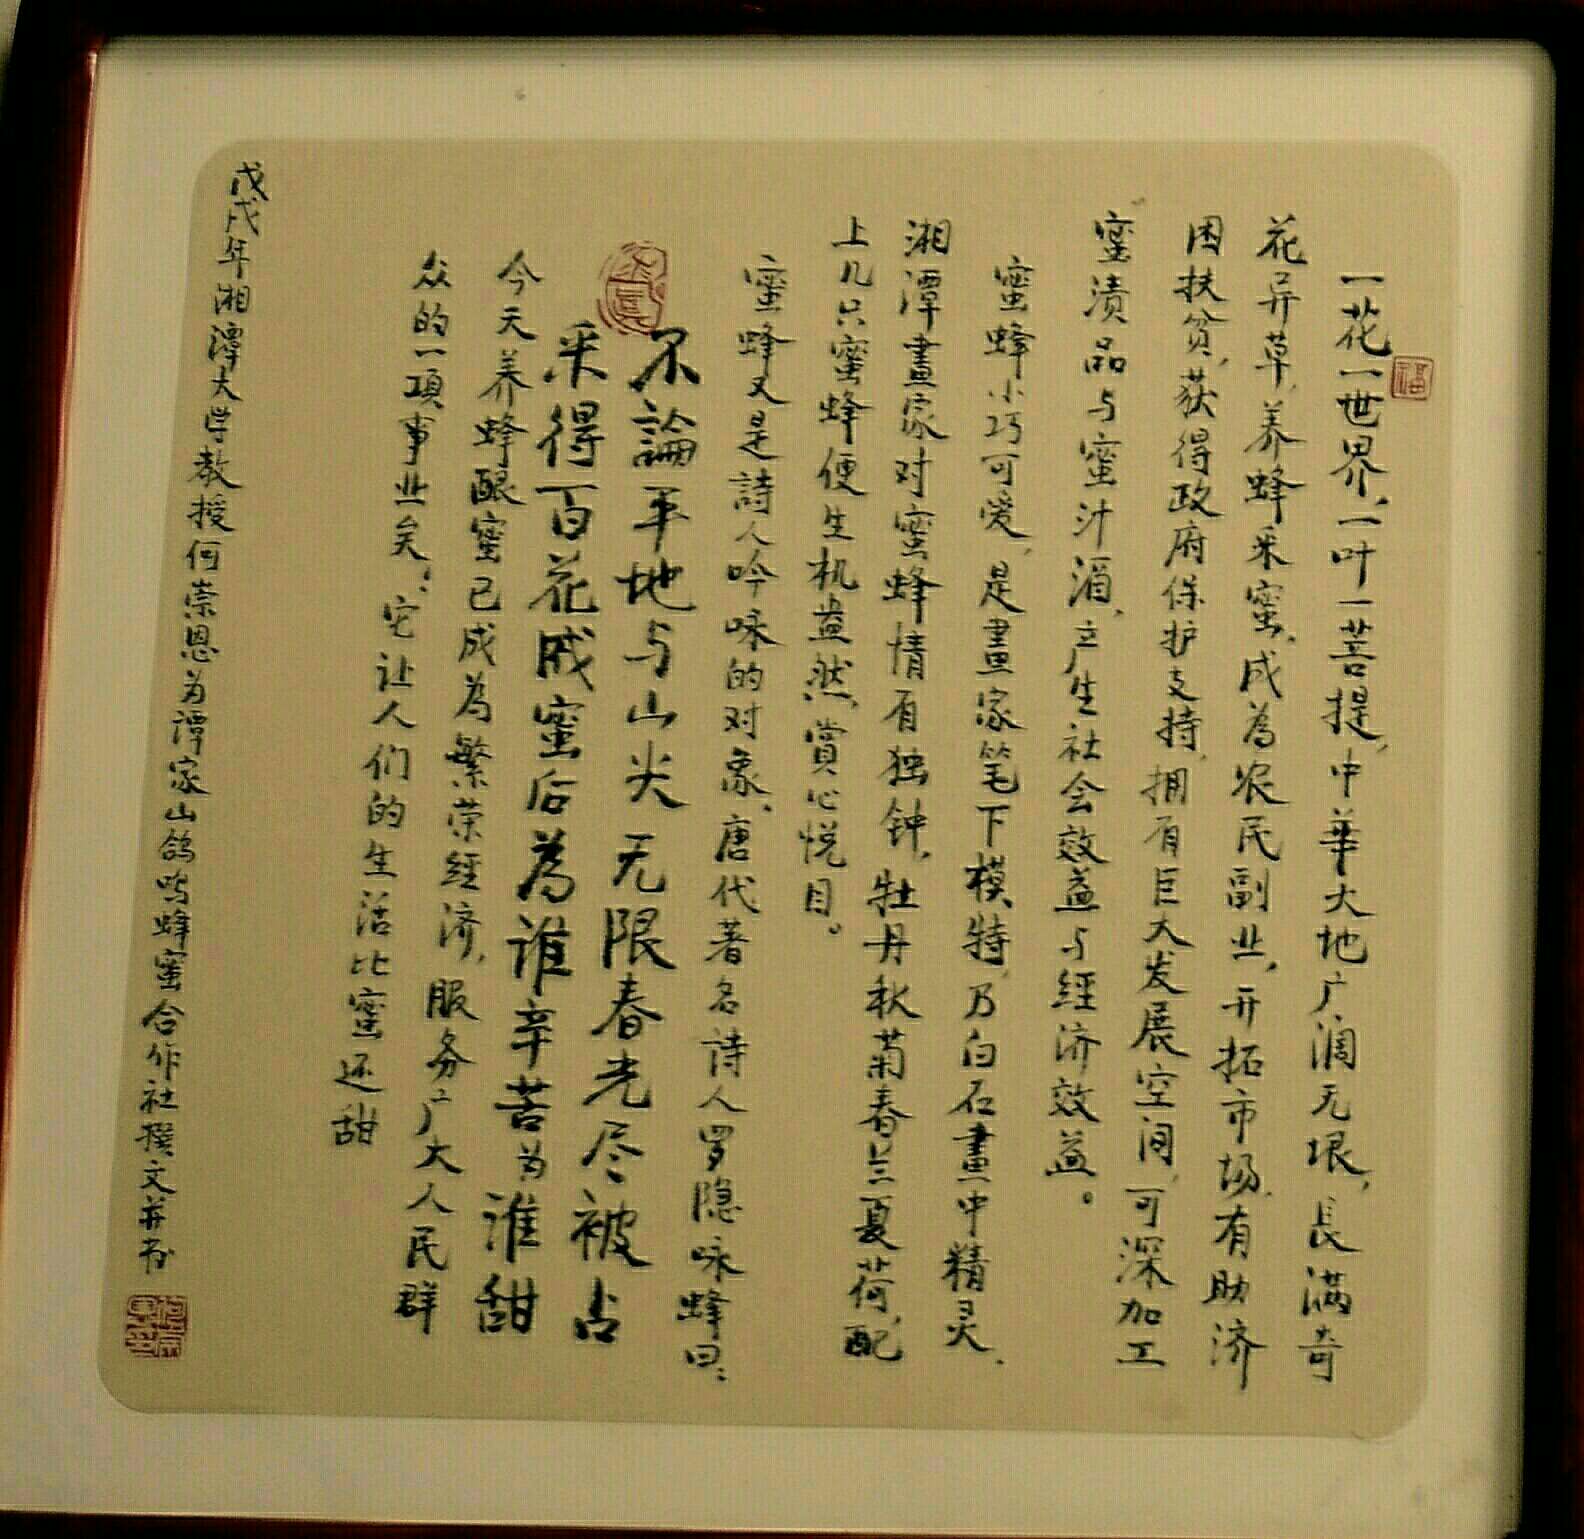 福
一花一世界，一叶一菩提，中華大地广阔无垠，長满奇
花异草，养蜂采蜜，成為农民副业，开拓市场，有助济
困扶贫，获得政府保护支持，拥有巨大发展空间，可深加工
蜜渍品与蜜汁酒，产生社会效益与經济效益。
蜜蜂小巧可爱，是畫家笔下模特，乃白石畫中精灵，
湘潭畫家对蜜蜂情有独钟，牡丹秋菊春兰夏荷，配
上几只蜜蜂便生机盎然，赏心悦目。
蜜蜂又是詩人吟咏的对象，唐代著名詩人罗隐咏蜂曰：
不論平地与山尖无限春光尽被占
采得百花成蜜后為谁辛苦为谁甜
今天养蜂酿蜜已成為繁荣經济，服务广大人民群
众的一项事业矣：它让人们的生活比蜜还甜
戊戌年湘潭大学教授何崇恩为谭家山鸽鸣蜂蜜合作社撰文并书